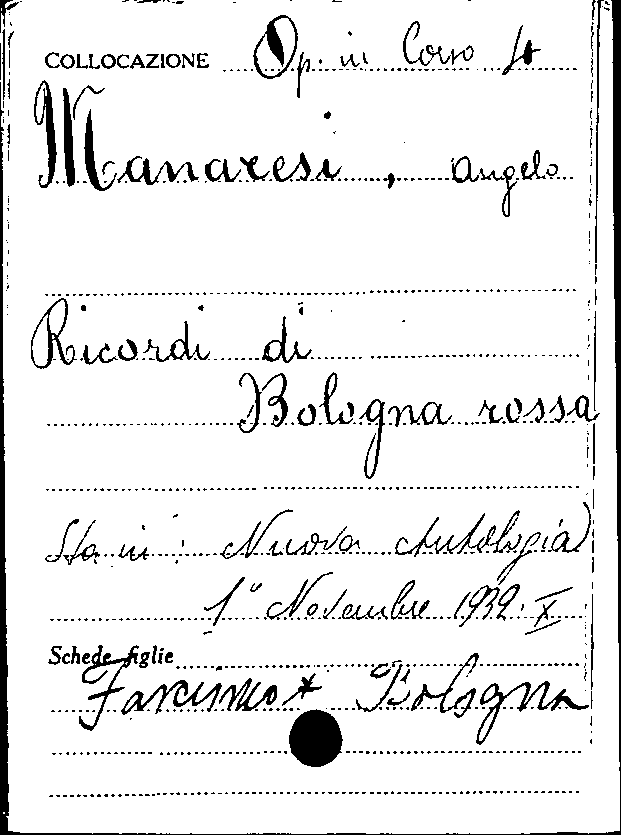 COLLOCAZIONE Op. in Corso St
Manaresi, Angelo
Ricordi di
Bologna rossa
Sta in: Nuova Antologia
1° Novembre 1932. X
Schede figlie
Fascismo * Bologna